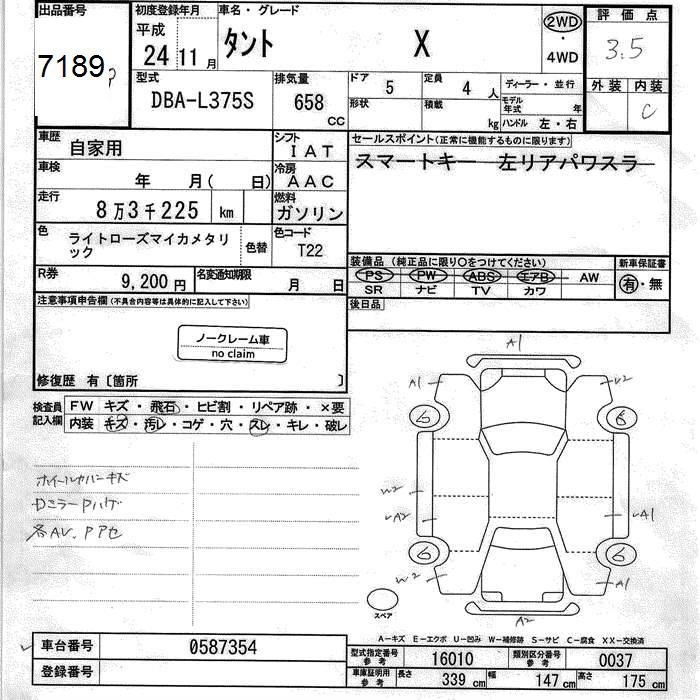 出品番号
7189
初度登録年月
平成
24 11 月
車名・グレード
タント X
2WD
・
4WD
評価点
3.5
外装 内装
C
型式
DBA-L375S
排気量
658
CC
ドア 5
形状
定員 4 人
積載 kg
ディーラー・並行
モデル年式 年
ハンドル 左・右
車歴
自家用
シフト
IAT
車検
年 月( 日)
冷房
AAC
走行
8万3千225 km
燃料
ガソリン
色
ライトローズマイカメタリック
色替
色コード
T22
R券
9,200 円
名変通知期限
月 日
セールスポイント(正常に機能するものに限ります)
スマートキー 左リアパワスラ
装備品(純正品に限り○をつけてください)
PS PW ABS エアB AW
SR ナビ TV カワ
新車保証書
有・無
後日品
注意事項申告欄(不具合内容等は具体的に記入して下さい)
ノークレーム車
no claim
修復歴 有〔箇所 〕
検査員記入欄
FW キズ・飛石・ヒビ割・リペア跡・×要
内装 キズ・汚レ・コゲ・穴・スレ・キレ・破レ
ホイールカバーキズ
DミラーPハゲ
各AU、Pアセ
A1
A1
U2
6
6
W2
A2
A1
6
6
W2
A1
A2
スペア
A-キズ E-エクボ U-凹み W-補修跡 S-サビ C-腐食 XX-交換済
車台番号
0587354
登録番号
型式指定番号 参考
16010
類別区分番号 参考
0037
車庫証明用 参考
長さ 339 cm 幅 147 cm 高さ 175 cm